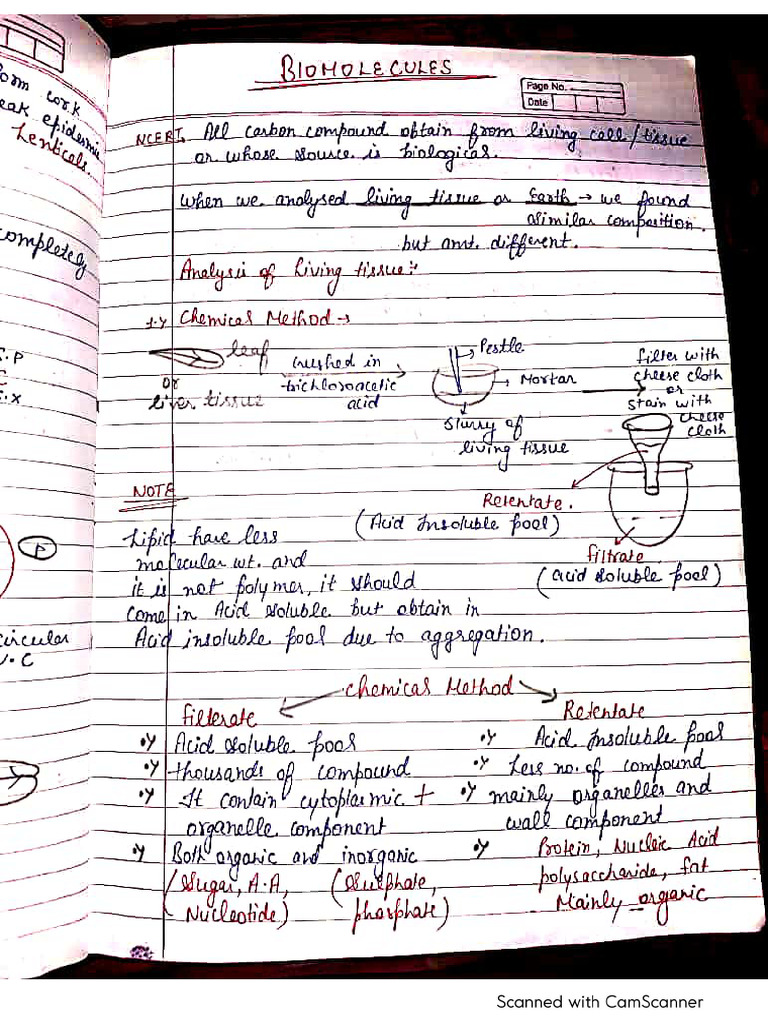 orm cork
eak epidermis
Lenticels.
completely
S.P
C.X
P
circular
V.C
BIOMOLECULES
Page No.
Date
NCERT, All carbon compound obtain from living cell/tissue
or whose source is biological.
when we analysed living tissue or Earth → we found
similar composition.
but amt. different.
Analysis of Living tissue:-
1.> Chemical Method →
leaf
or
liver tissue
crushed in
trichloroacetic
acid
Pestle
Mortar
Slurry of
living tissue
filter with
cheese cloth
or
stain with
cheese
cloth
Retentate.
(Acid Insoluble pool)
filtrate
(acid soluble pool)
NOTE
Lipid have less
molecular wt. and
it is not polymer, it should
come in Acid soluble but obtain in
Acid insoluble pool due to aggregation.
Chemical Method
filterate
•> Acid soluble pool
•> thousands of compound
•> It contain cytoplasmic +
organelle component
•> Both organic and inorganic
(Sugar, A.A, (Sulphate,
Nucleotide) phosphate)
Retentate
•> Acid Insoluble pool
•> Less no. of compound
•> mainly organelles and
wall component
•> Protein, Nucleic Acid
polysaccharide, fat
Mainly organic
Scanned with CamScanner